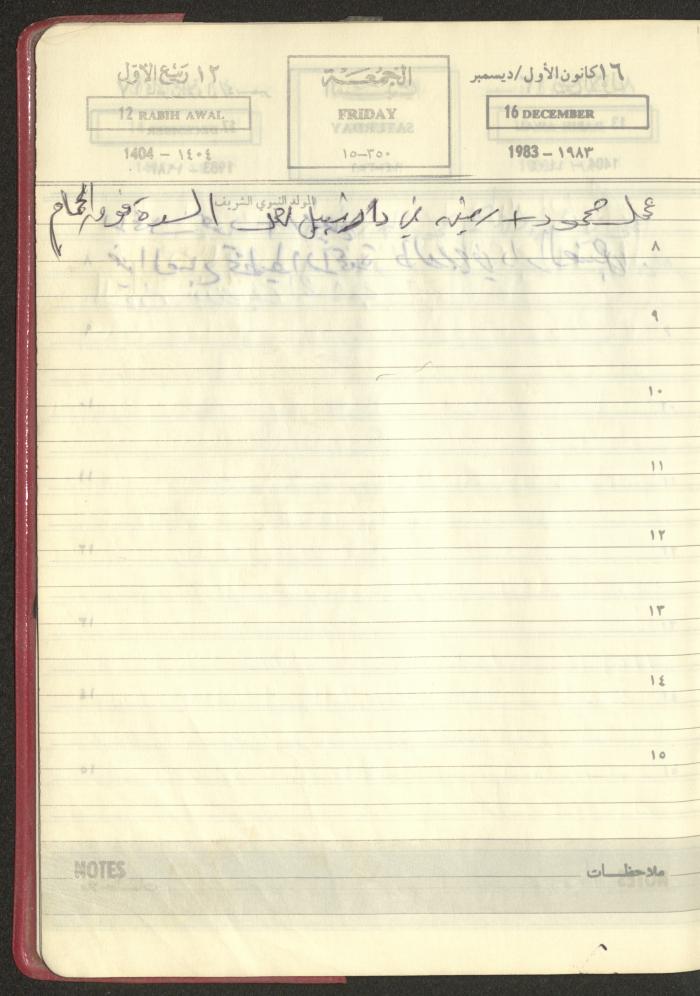 ١٦ كانون الأول/ديسمبر
16 DECEMBER
1983 – ١٩٨٣
الجمعـــة
FRIDAY
١٥–٣٥٠
١٢ ربيع الأول
12 RABIH AWAL
1404 – ١٤٠٤
المولد النبوي الشريف
عمل محمود + في دار نبيل السدة فوق الحمام
٨
٩
١٠
١١
١٢
١٣
١٤
١٥
NOTES ملاحظــات